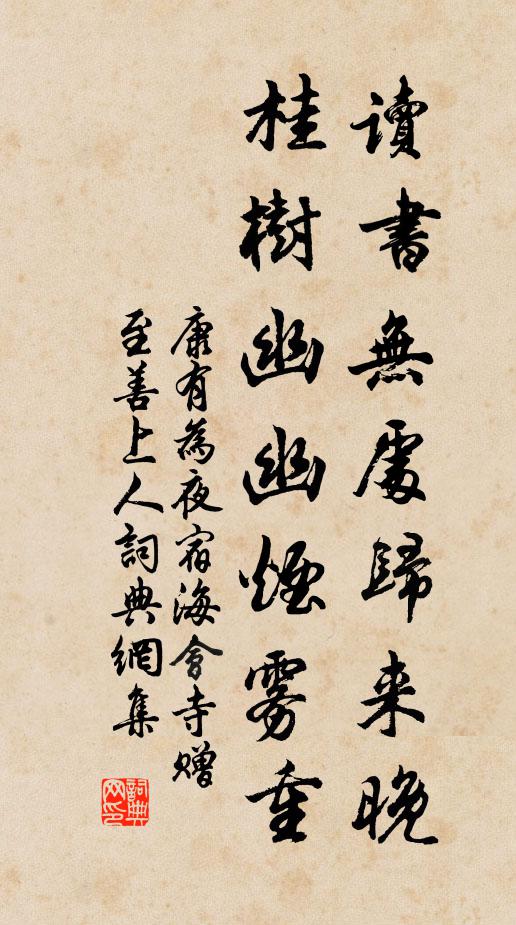 讀書無處歸来晚
桂樹幽幽煙霧重
康有為夜宿海會寺贈
至善上人詞典網集
詞典
网印